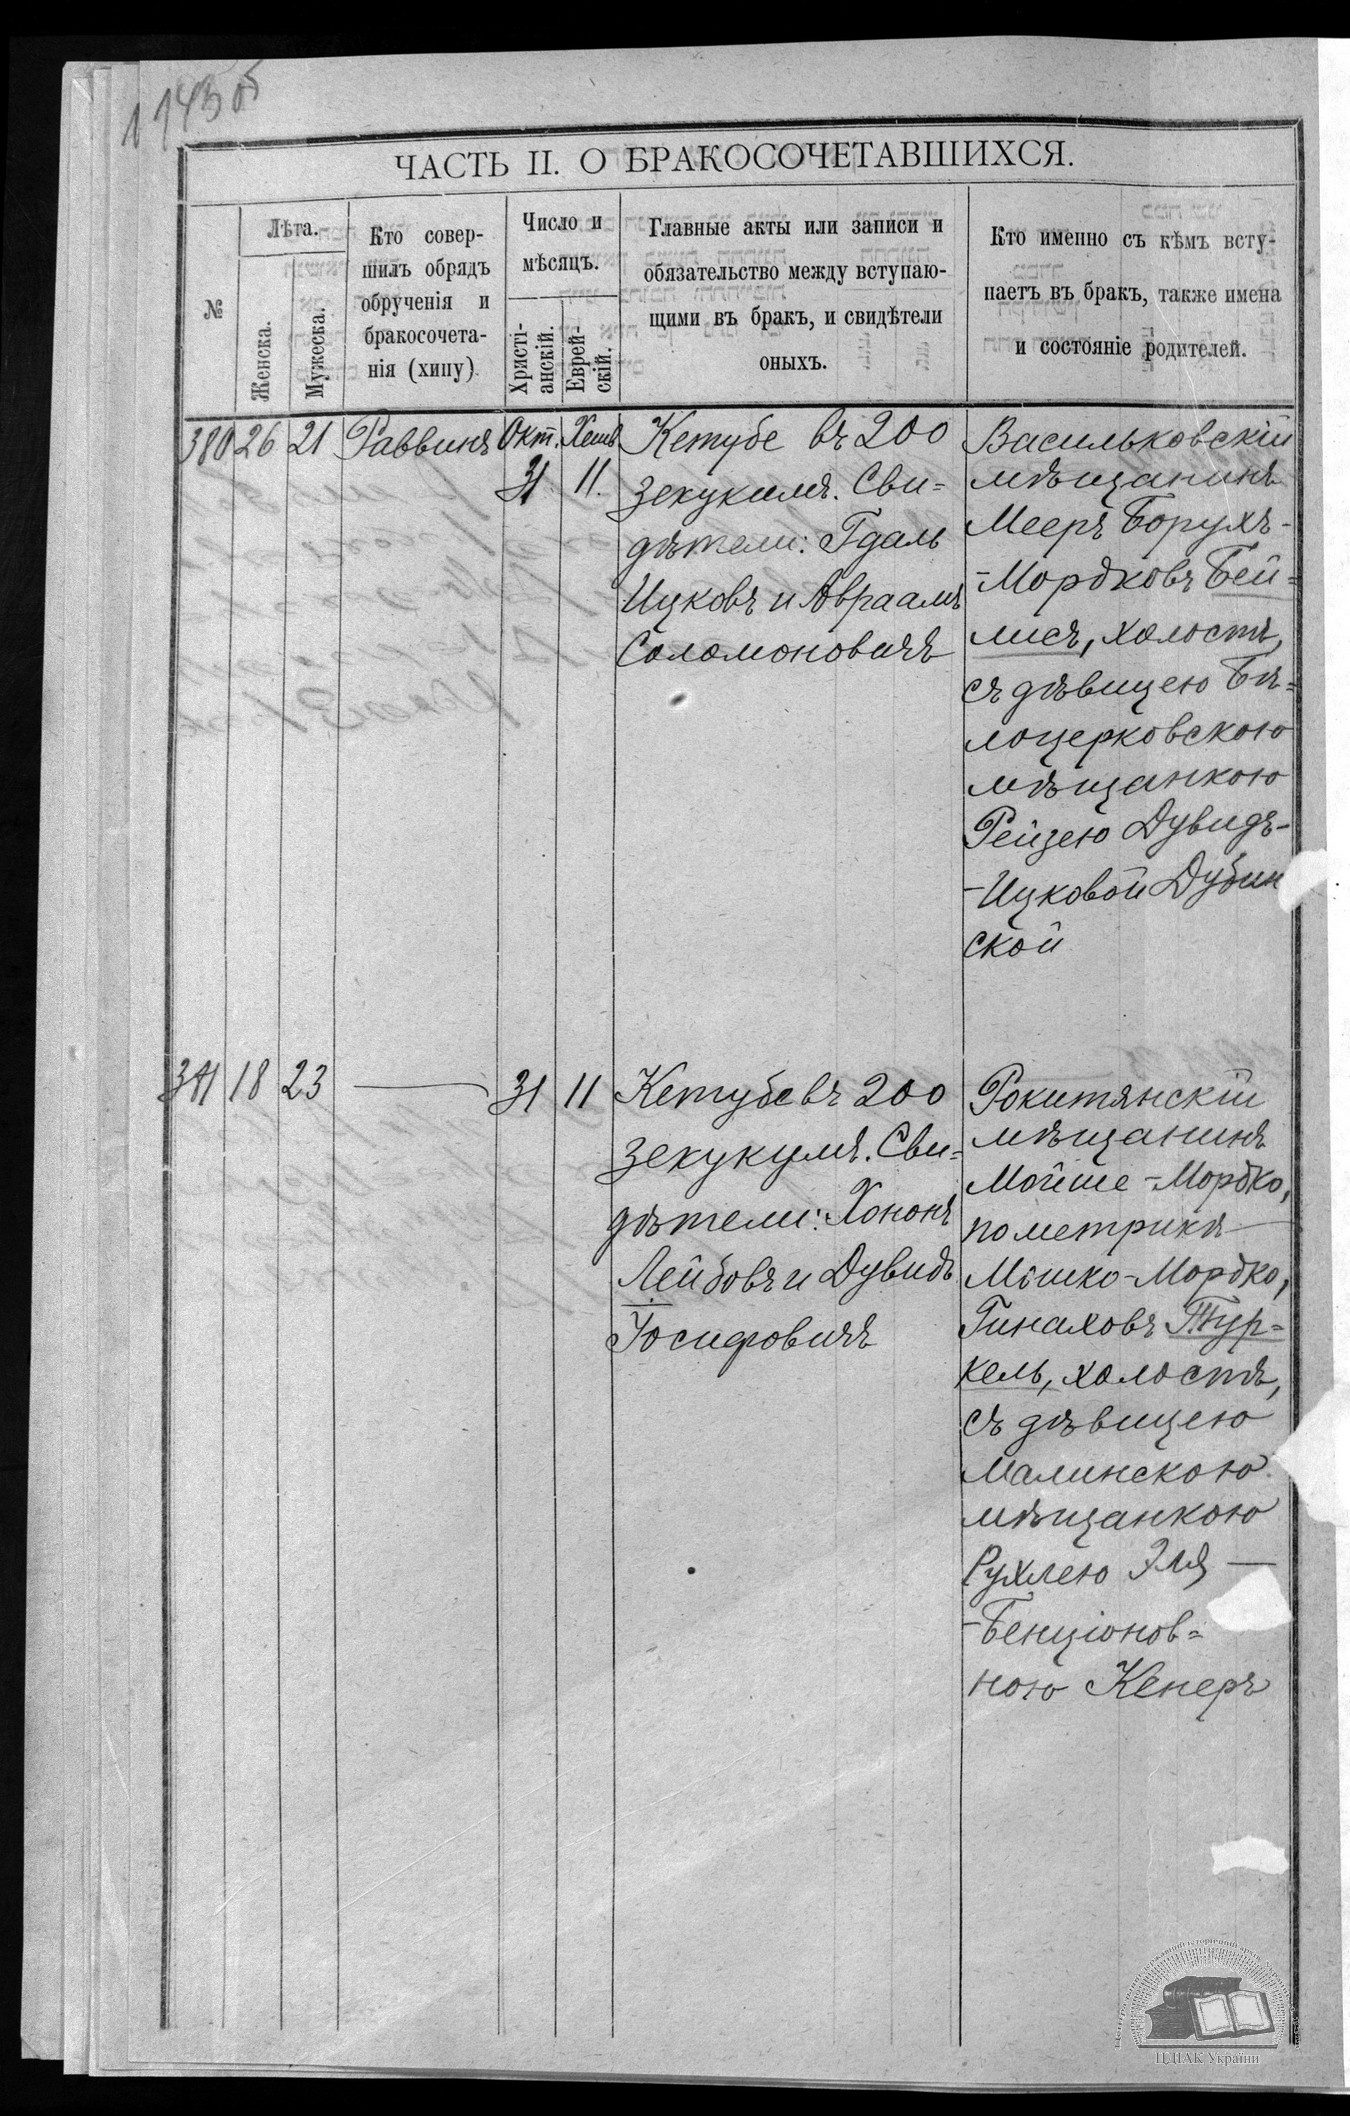 1143 об
ЧАСТЬ II. О БРАКОСОЧЕТАВШИХСЯ.
№
Лѣта.
Женска.
Мужеска.
Кто совер-
шилъ обрядъ
обрученія и
бракосочета-
нія (хипу)
Число и
мѣсяцъ.
Христі-
анскій.
Еврей-
скій.
Главные акты или записи и
обязательство между вступаю-
щими въ бракъ, и свидѣтели
оныхъ.
Кто именно съ кѣмъ всту-
паетъ въ бракъ, также имена
и состояніе родителей.
380 26 21 Раввинъ Окт. 31 Хешв. 11.
Кетубе въ 200
зекукимъ. Сви=
дѣтели: Гдаль
Ицковъ и Авраамъ
Соломоновичъ
Васильковскій
мѣщанинъ
Мееръ Борухъ-
-Мордковъ Бей=
лисъ, холостъ,
съ дѣвицею Бѣ=
лоцерковскою
мѣщанкою
Рейзею Дувидъ-
-Ицковой Дубин
ской
381 18 23 — 31 11
Кетубе въ 200
зекукумъ. Сви=
дѣтели: Хононъ
Лейбовъ и Дувидъ
Іосифовичъ
Рокитянскій
мѣщанинъ
Мойше-Мордко,
по метрикѣ —
Мошко-Мордко,
Пинаховъ Тур=
кель, холостъ,
съ дѣвицею
Малинскою
мѣщанкою
Рухлею Эля —
-Бенціонов=
ною Кенеръ
ЦДІАК України